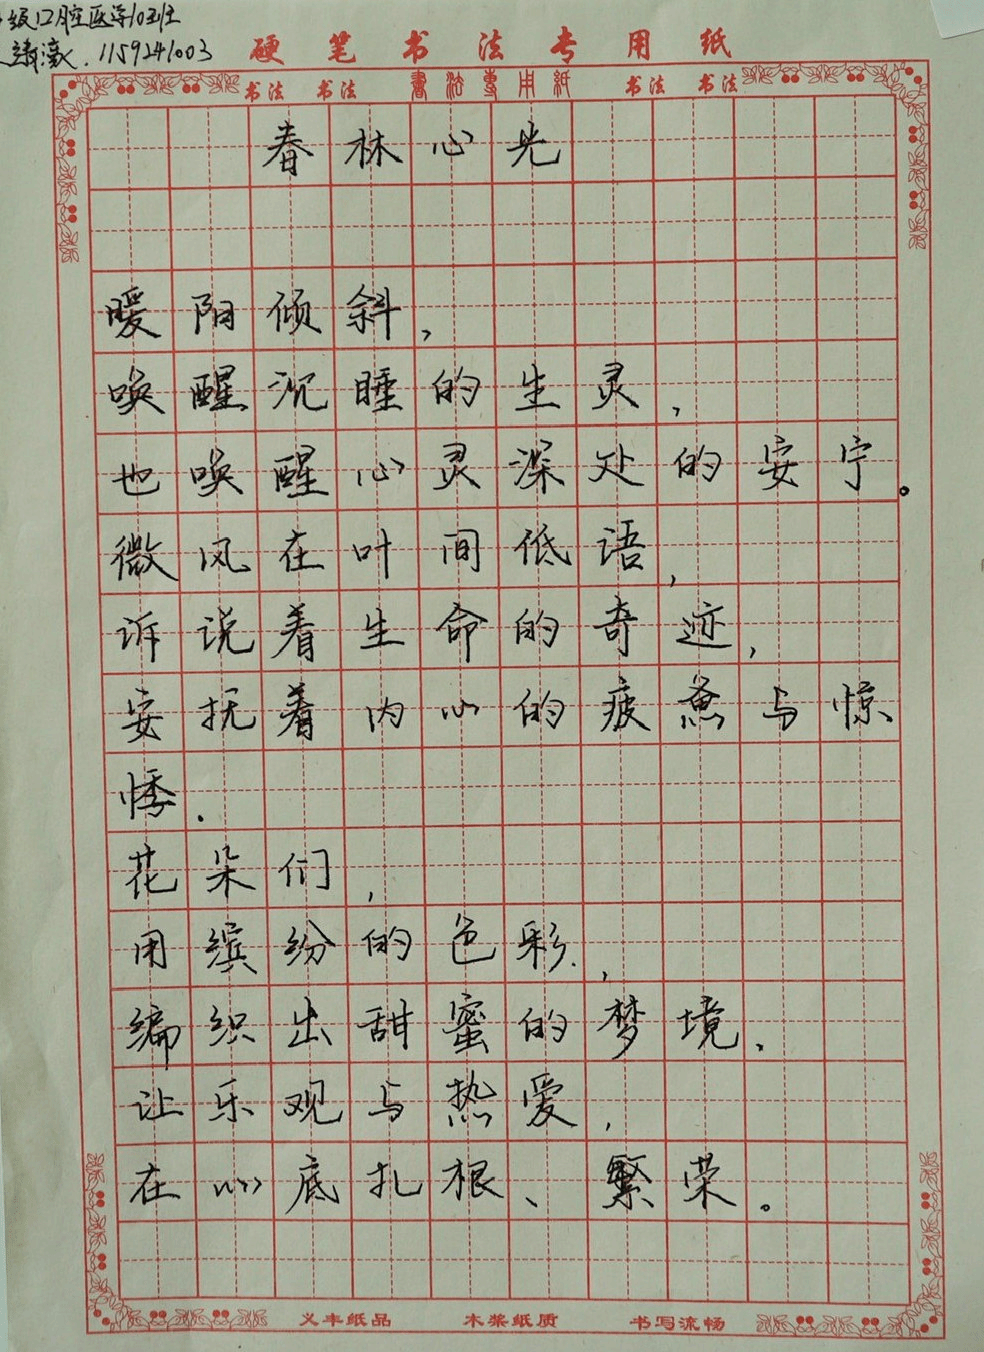 级口腔医学10班
1159241003
硬笔书法专用纸
书法 书法 書法專用紙 书法 书法
春林心光
暖阳倾斜，
唤醒沉睡的生灵，
也唤醒心灵深处的安宁。
微风在叶间低语，
诉说着生命的奇迹，
安抚着内心的疲惫与惊
悸.
花朵们，
用缤纷的色彩，
编织出甜蜜的梦境.
让乐观与热爱，
在心底扎根、繁荣。
义丰纸品 木浆纸质 书写流畅